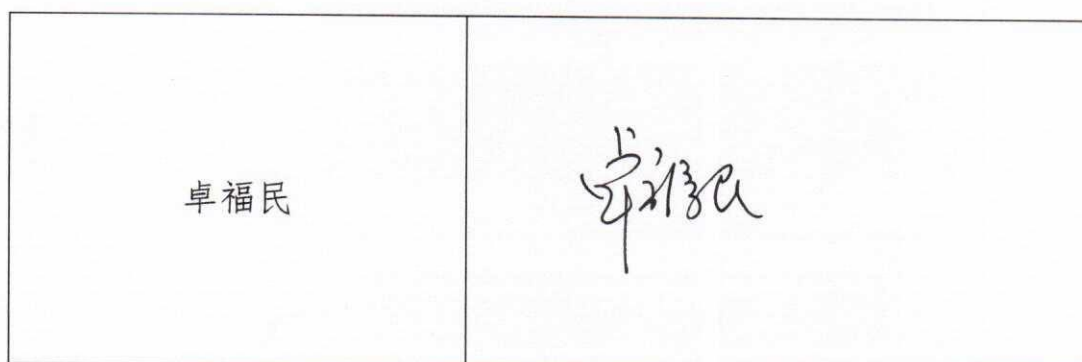 卓福民 卓福民